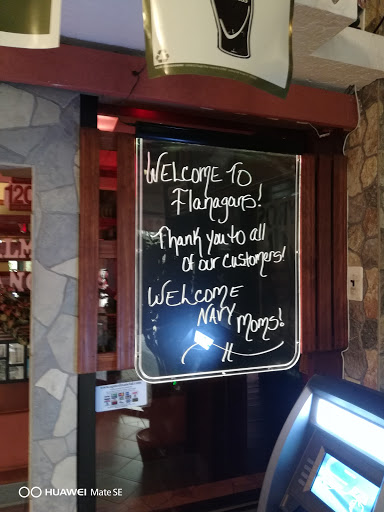 WELCOME TO
Flanagans!
Thank you to all
of our customers!
WELCOME
NAVY
Moms!
HUAWEI Mate SE